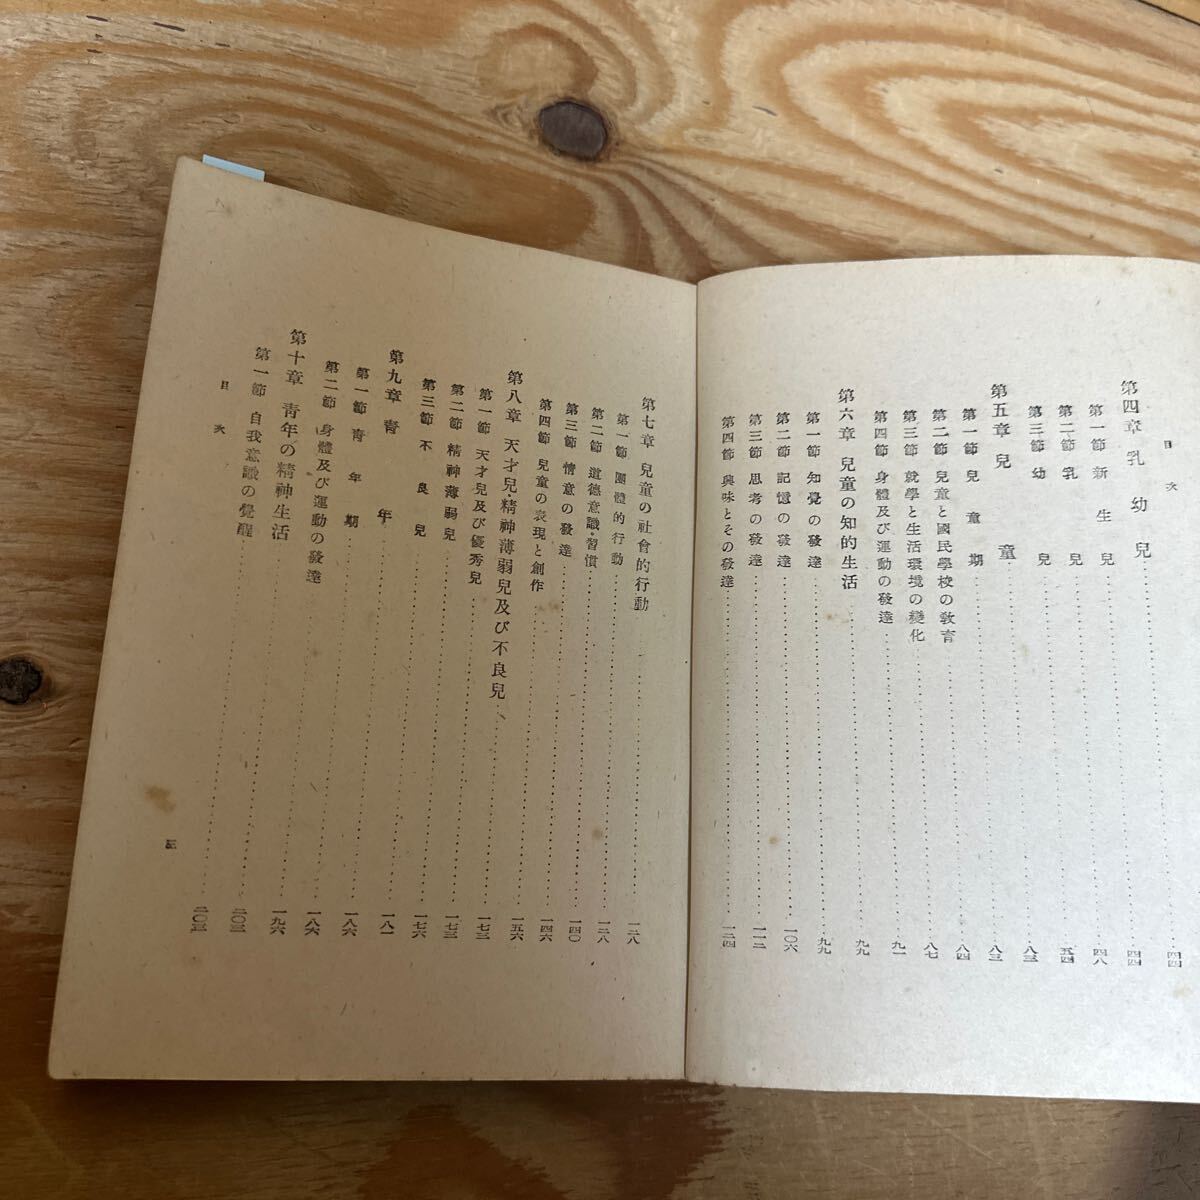 目次
第四章 乳幼兒……四四
第一節 新生兒……四四
第二節 乳兒……四八
第三節 幼兒……五四
第五章 兒童……八三
第一節 兒童期……八三
第二節 兒童と國民學校の敎育……八四
第三節 就學と生活環境の變化……八七
第四節 身體及び運動の發達……九一
第六章 兒童の知的生活……九九
第一節 知覺の發達……九九
第二節 記憶の發達……一〇六
第三節 思考の發達……一一二
第四節 興味とその發達……一二四
第七章 兒童の社會的行動……一二八
第一節 團體的行動……一二八
第二節 道德意識・習慣……一四〇
第三節 情意の發達……一四六
第四節 兒童の表現と創作……一五六
第八章 天才兒・精神薄弱兒及び不良兒……一七三
第一節 天才兒及び優秀兒……一七三
第二節 精神薄弱兒……一七六
第三節 不良兒……一八一
第九章 靑年……一八六
第一節 靑年期……一八六
第二節 身體及び運動の發達……一九六
第十章 靑年の精神生活……二〇三
第一節 自我意識の覺醒……二〇三
目次
三